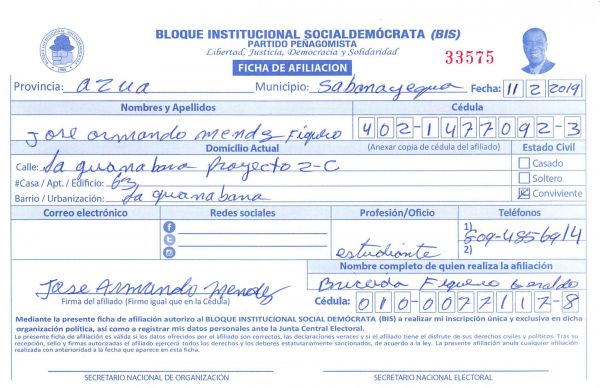 BLOQUE INSTITUCIONAL SOCIALDEMÓCRATA (BIS)
PARTIDO PEÑAGOMISTA
Libertad, Justicia, Democracia y Solidaridad
33575
FICHA DE AFILIACION
Provincia: azua Municipio: Sabanayegua Fecha: 11 2 2019
Nombres y Apellidos Cédula
Jose armando mendez Figuero 402-1477092-3
Domicilio Actual (Anexar copia de cédula del afiliado) Estado Civil
Calle: la guanabana proyecto 2-C Casado
#Casa / Apt. / Edificio: 63 Soltero
Barrio / Urbanización: la guanabana Conviviente
Correo electrónico Redes sociales Profesión/Oficio Teléfonos
1) 809-4856914
estudiante 2)
Nombre completo de quien realiza la afiliación
Jose Armando Mendez Briceida Figuero Geraldo
Firma del afiliado (Firme igual que en la Cédula) Cédula: 010-0077117-8
Mediante la presente ficha de afiliación autorizo al BLOQUE INSTITUCIONAL SOCIAL DEMÓCRATA (BIS) a realizar mi inscripción única y exclusiva en dicha
organización política, así como a registrar mis datos personales ante la Junta Central Electoral.
La presente ficha de afiliación es válida si los datos ofrecidos por el afiliado son correctas, las declaraciones veraces y si el afiliado tiene el disfrute de sus derechos civiles y políticos. Tras su
recepción, sello y firmas autorizadas el afiliado ejercerá todos los derechos y los deberes estatutariamente sancionados, de acuerdo a la ley. La presente afiliación anula cualquier afiliación
realizada con anterioridad a la fecha que aparece en esta ficha.
SECRETARIO NACIONAL DE ORGANIZACIÓN SECRETARIO NACIONAL ELECTORAL